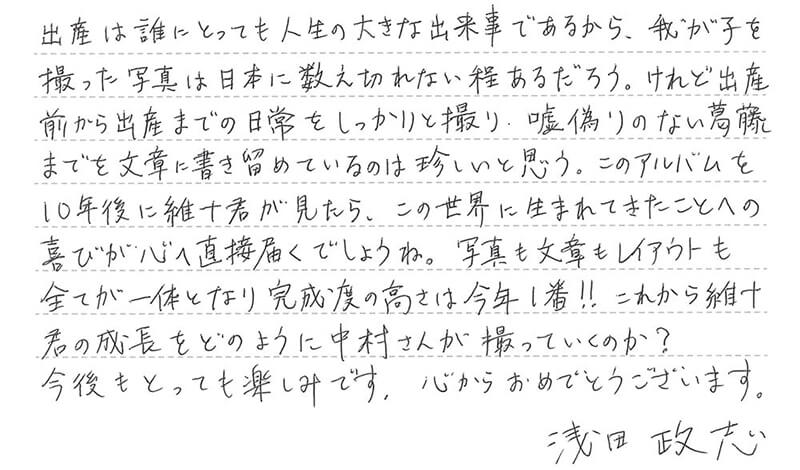 出産は誰にとっても人生の大きな出来事であるから、我が子を
撮った写真は日本に数え切れない程あるだろう。けれど出産
前から出産までの日常をしっかりと撮り、嘘偽りのない葛藤
までを文章に書き留めているのは珍しいと思う。このアルバムを
10年後に維十君が見たら、この世界に生まれてきたことへの
喜びが心へ直接届くでしょうね。写真も文章もレイアウトも
全てが一体となり完成度の高さは今年1番!! これから維十
君の成長をどのように中村さんが撮っていくのか?
今後もとっても楽しみです。心からおめでとうございます。
浅田政志